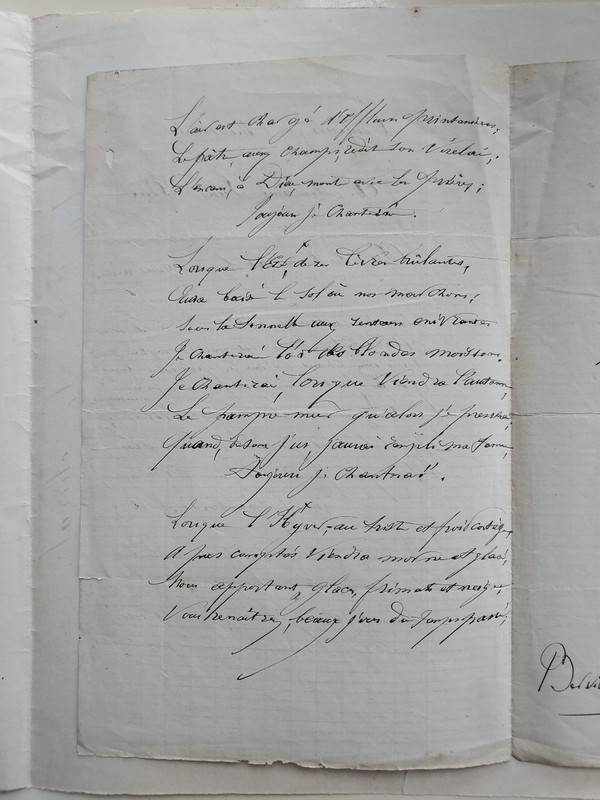 L'air est chargé d'effluves printanières;
Le pâtre aux champs redit son virelai,
L'encens, à Dieu, monte avec les prières;
Toujours je chanterai.
Lorsque l'Eté, de ses lèvres brûlantes,
Aura baisé le sol où nous marchons;
Sous la tonnelle aux senteurs enivrantes
Je chanterai l'or des blondes moissons,
Je chanterai, lorsque viendra l'automne,
Le pampre mur qu'alors je presserai,
Quand, de son jus, j'aurai empli ma tonne,
Toujours je chanterai.
Lorsque l'Hyver, au triste et froid cortège,
A pas comptés viendra morne et glacé,
Nous apportant, glaces, frimats et neige,
Vous renaîtrez, beaux jours du temps passé;